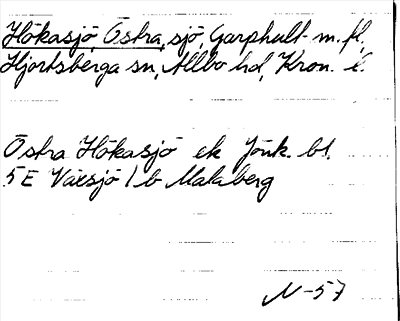 Hökasjö, Östra, sjö, Garphult m. fl.
Hjortsberga sn, Allbo hd, Kron. l.
Östra Hökasjö ek Jönk. bl.
5E Växsjö 1b Malaberg
N-57